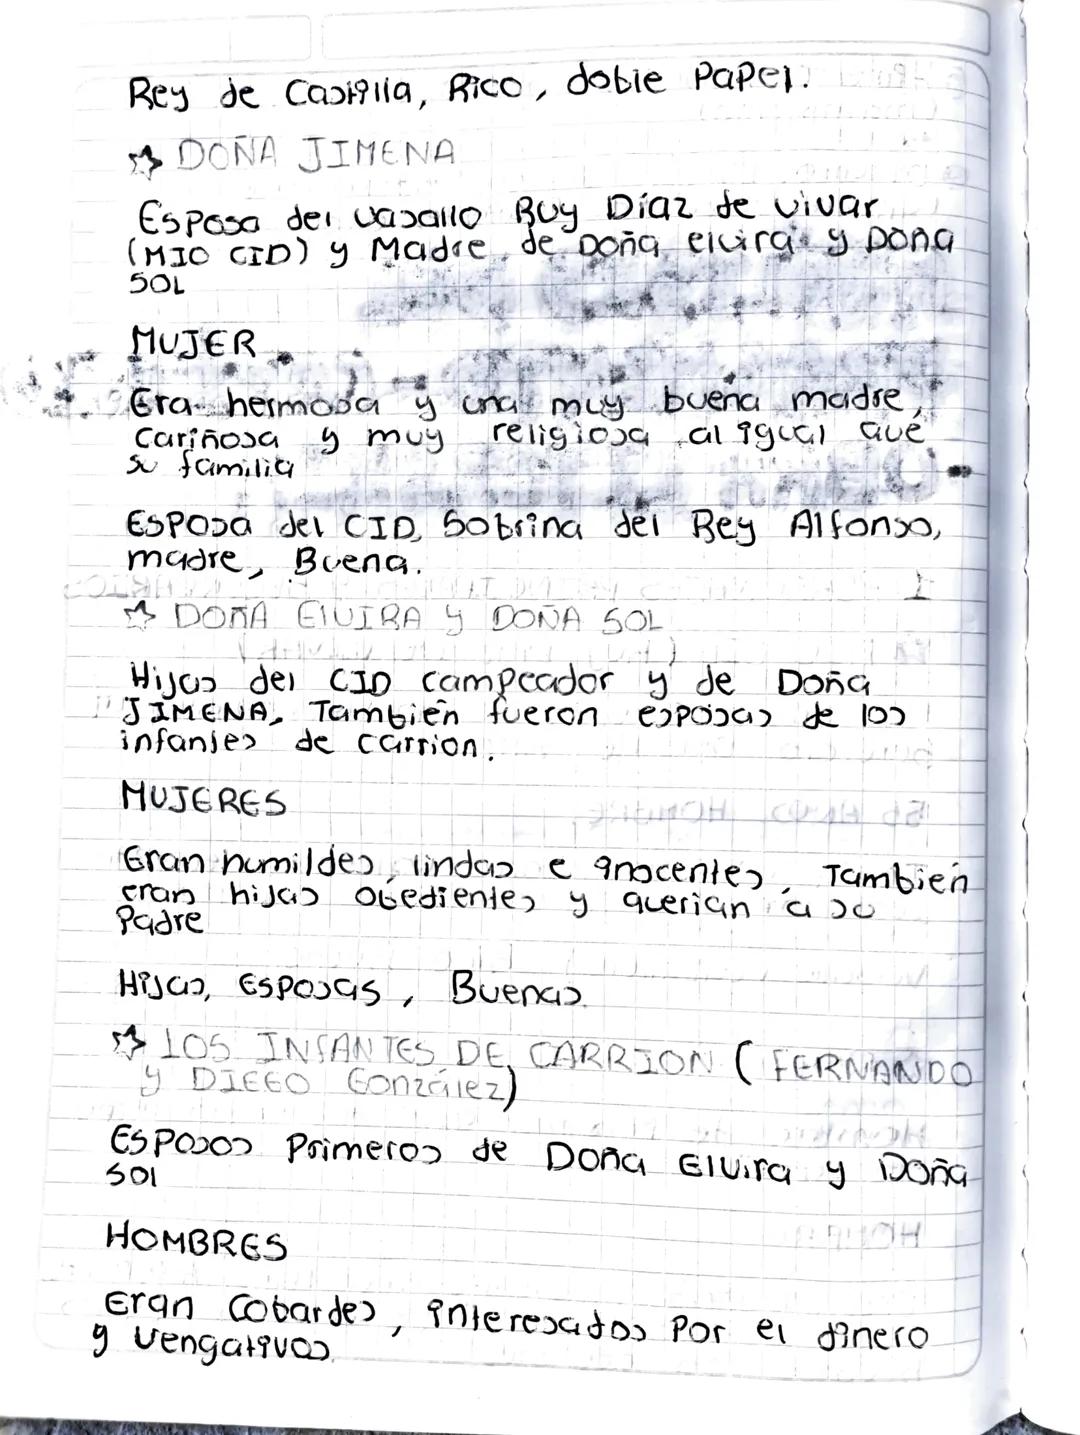 Rey de Castilla, Rico, doble Papel.
☆ DOÑA JIMENA
Esposa del vasallo Ruy Díaz de vivar
(MIO CID) y Madre de Doña elvira y Doña
SOL
MUJER
Era hermosa y una muy buena madre,
cariñosa y muy religiosa al igual que
su familia
Esposa del CID, Sobrina del Rey Alfonso,
madre, Buena.
☆ DOÑA ElVIRA y DOÑA SOL
Hijas del CID campeador y de Doña
JIMENA, También fueron esposas de los
infantes de carrion.
MUJERES
Eran humildes, lindas e inocentes, También
eran hijas obedientes y querian a su
Padre
Hijas, Esposas, Buenas.
☆ LOS INFANTES DE CARRION (FERNANDO
y DIEGO González)
Esposos Primeros de Doña Elvira y Doña
Sol
HOMBRES
Eran Cobardes, interesados por el dinero
y vengativos.